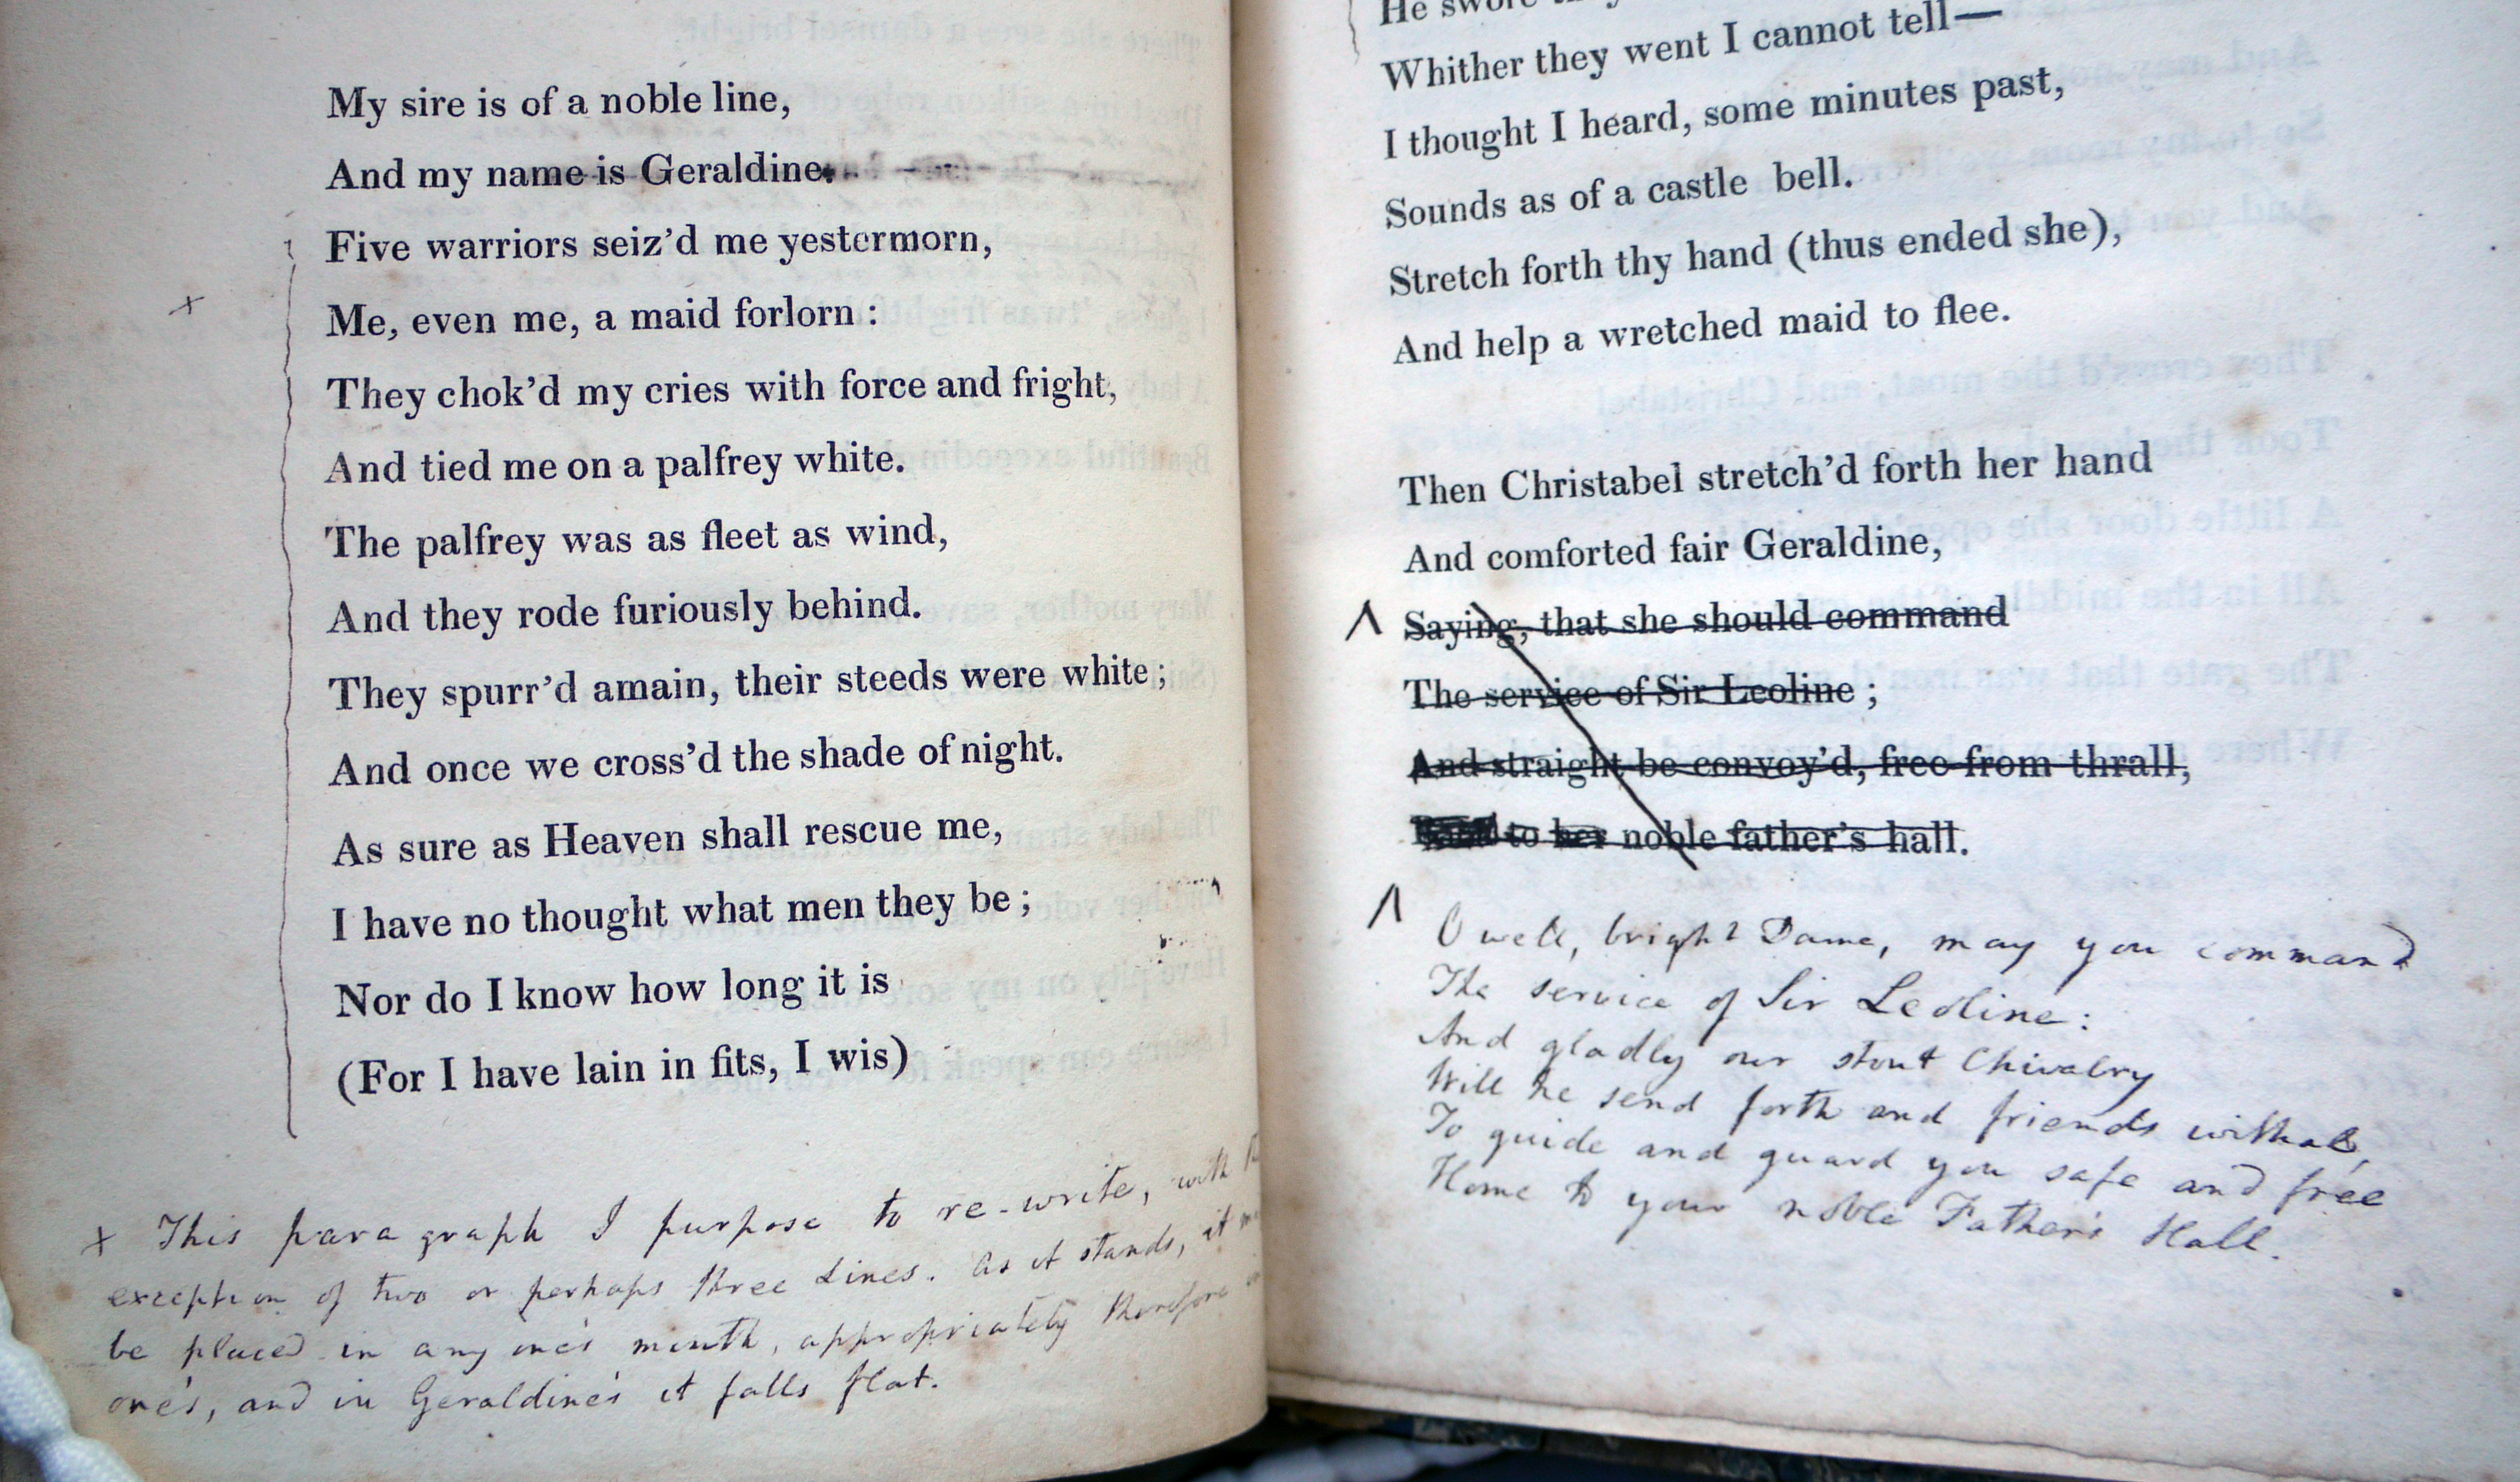 My sire is of a noble line,
And my name is Geraldine.
Five warriors seiz'd me yestermorn,
x
Me, even me, a maid forlorn :
They chok'd my cries with force and fright,
And tied me on a palfrey white.
The palfrey was as fleet as wind,
And they rode furiously behind.
They spurr'd amain, their steeds were white ;
And once we cross'd the shade of night.
As sure as Heaven shall rescue me,
I have no thought what men they be ;
Nor do I know how long it is
(For I have lain in fits, I wis)
x This paragraph I purpose to re-write, with
exception of two or perhaps three Lines. As it stands, it
be placed in any one's mouth, appropriately therefore
one's, and in Geraldine's it falls flat.
He swore
Whither they went I cannot tell—
I thought I heard, some minutes past,
Sounds as of a castle bell.
Stretch forth thy hand (thus ended she),
And help a wretched maid to flee.
Then Christabel stretch'd forth her hand
And comforted fair Geraldine,
Saying, that she should command
The service of Sir Leoline ;
And straight be convoy'd, free from thrall,
to her noble father's hall.
O well, bright Dame, may you command
The service of Sir Leoline:
And gladly our stout Chivalry
Will he send forth and friends withal,
To guide and guard you safe and free
Home to your noble Father's Hall.